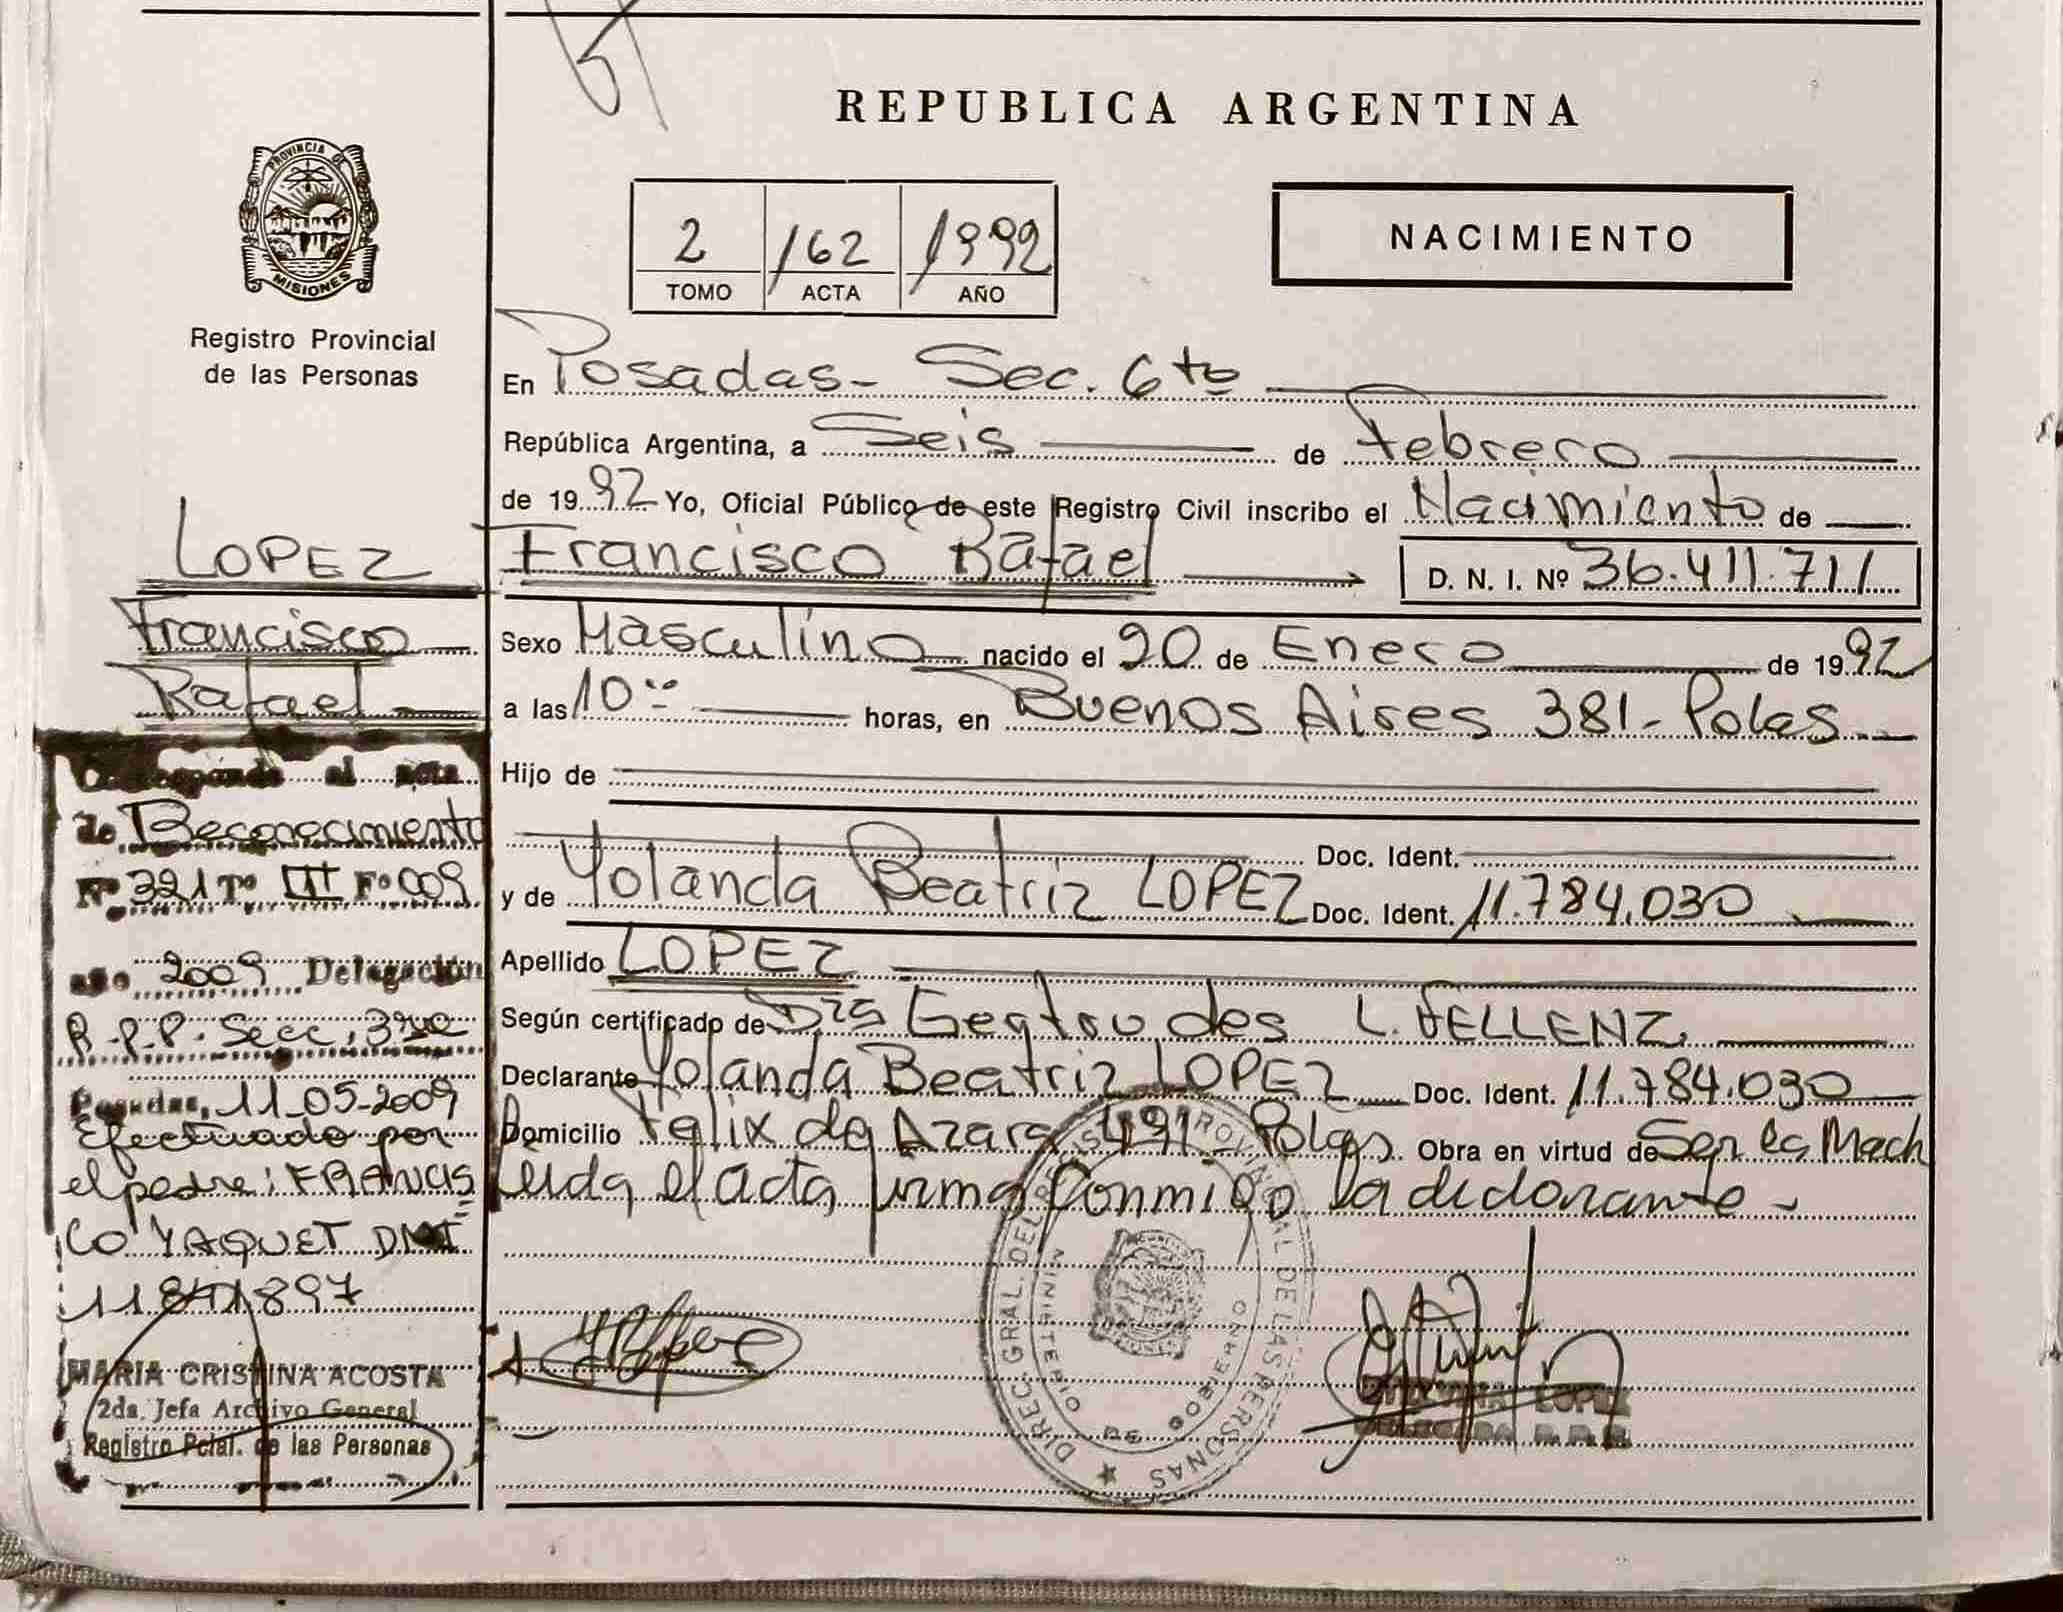 REPUBLICA ARGENTINA
PROVINCIA DE
MISIONES
Registro Provincial
de las Personas
2 /62 /1992
TOMO ACTA AÑO
NACIMIENTO
En Posadas- Sec. 6to
República Argentina, a Seis de Febrero
de 1992 Yo, Oficial Público de este Registro Civil inscribo el Nacimiento de
Francisco Rafael D. N. I. Nº 36.411.711
Sexo Masculino nacido el 20 de Enero de 1992
a las 10 horas, en Buenos Aires 381- Pdas.
Hijo de
Doc. Ident.
y de Yolanda Beatriz LOPEZ Doc. Ident. 11.784.030
Apellido LOPEZ
Según certificado de Dra Gertrudes L. FELLENZ
Declarante Yolanda Beatriz LOPEZ Doc. Ident. 11.784.030
Domicilio Felix de Azara 491 Pdas. Obra en virtud de Ser la Madr
Leida el acta firma conmigo la declarante-
LOPEZ
Francisco
Rafael
Corresponde al acta
de Reconocimiento
Nº 321 Tº III Fº 009
año 2009 Delegación
R.P.P. Secc. 3ra
Posadas, 11-05-2009
Efectuado por
el padre: FRANCIS
CO YAQUET DNI
11841897
MARIA CRISTINA ACOSTA
2da. Jefa Archivo General
Registro Pcial. de las Personas
DIREC. GRAL. DEL REGISTRO PROVINCIAL DE LAS PERSONAS
MINISTERIO DE GOBIERNO
LOPEZ
DELEGADA R.P.P.